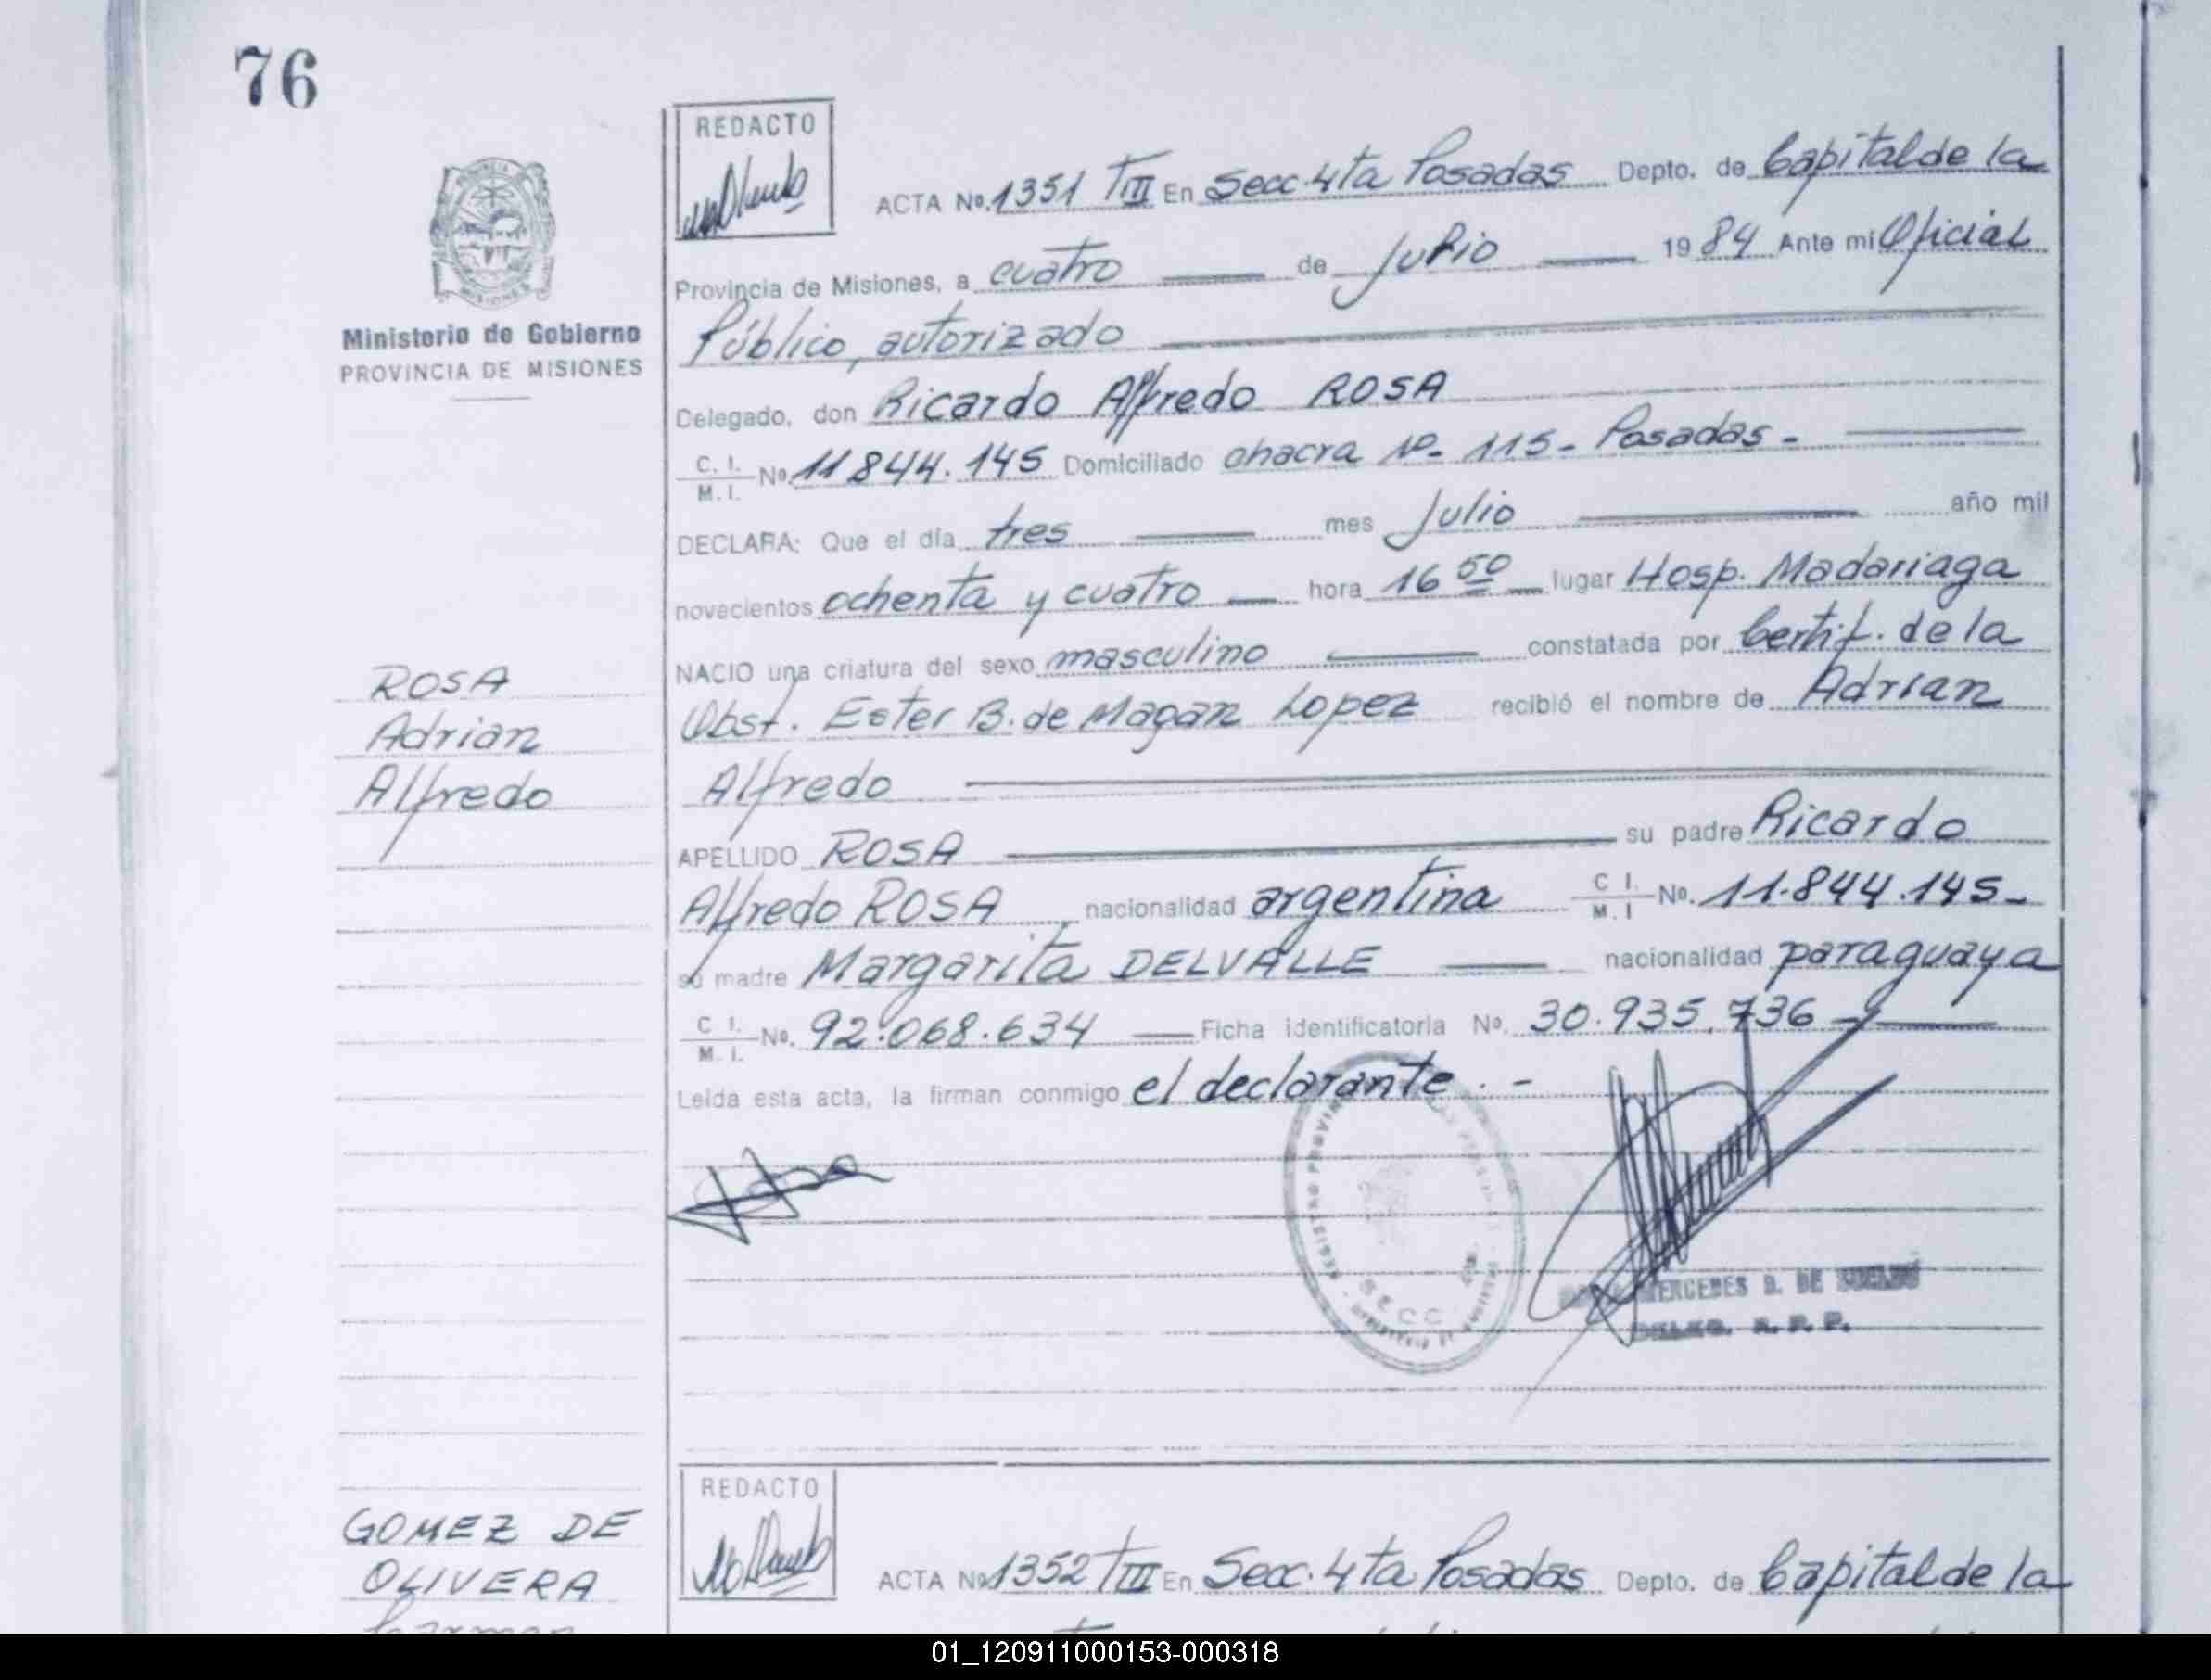 76
REDACTO
ACTA Nº. 1351 TIII En Secc. 4ta Posadas Depto. de Capital de la
Provincia de Misiones, a cuatro de Julio 1984 Ante mi Oficial
Público, autorizado
Ministerio de Gobierno
PROVINCIA DE MISIONES
Delegado, don Ricardo Alfredo ROSA
C. I. M. I. Nº. 11844.145 Domiciliado chacra Nº- 115- Posadas-
DECLARA: Que el día tres mes Julio año mil
novecientos ochenta y cuatro hora 16 50 lugar Hosp. Madariaga
NACIO una criatura del sexo masculino constatada por Certif. de la
Obst. Ester B. de Magan Lopez recibió el nombre de Adrian
Alfredo
ROSA
Adrian
Alfredo
APELLIDO ROSA su padre Ricardo
Alfredo ROSA nacionalidad argentina C I. M. I Nº. 11.844.145-
su madre Margarita DELVALLE nacionalidad paraguaya
C I. M. I. Nº. 92.068.634 Ficha identificatoria Nº. 30.935.736
Leída esta acta, la firman conmigo el declarante.-
REGISTRO PROVIN
SECC
MERCEDES D. DE
DELEG. R. P. P.
REDACTO
GOMEZ DE
OLIVERA
Carmen
ACTA Nº 1352 TIII En Secc. 4ta Posadas Depto. de Capital de la
01_120911000153-000318